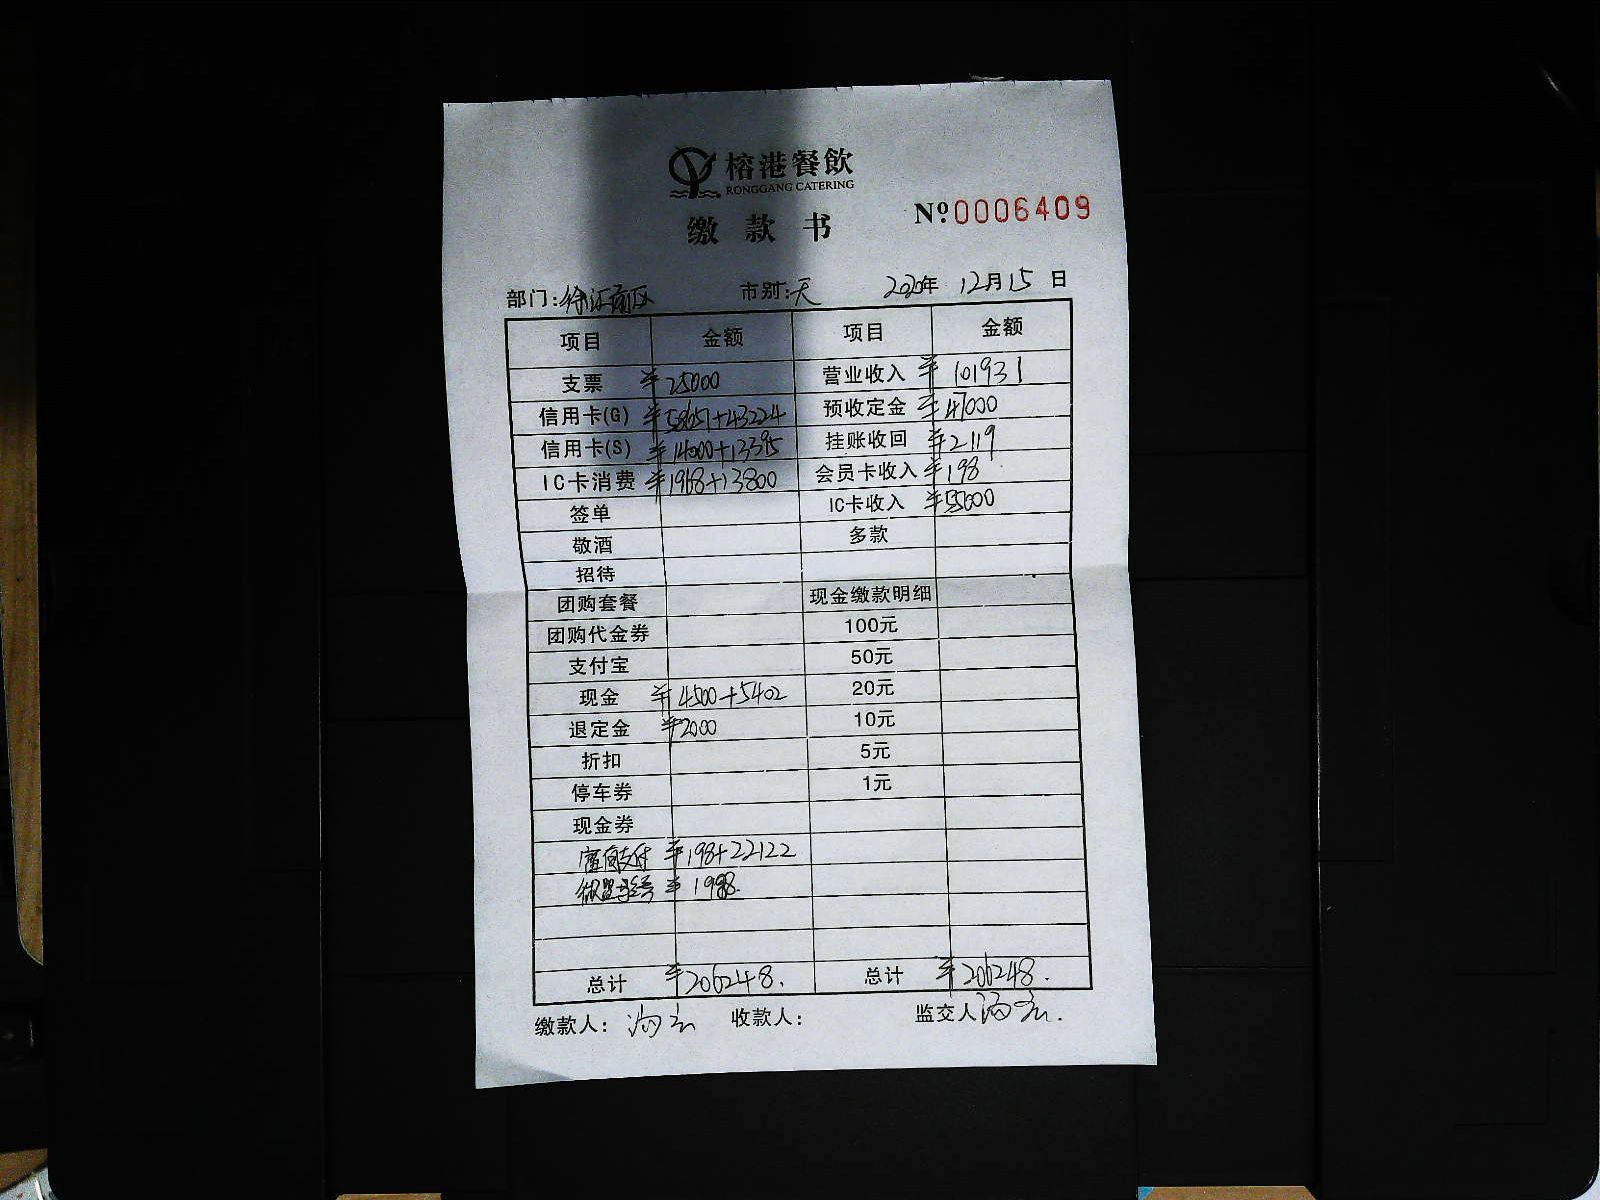 榕港餐飲
RONGGANG CATERING
缴款书
Nº0006409
部门:徐汇前区 市别:天 2020年 12月15日
项目 金额 项目 金额
支票 ¥25000 营业收入 ¥101931
信用卡(G) ¥58651+43224 预收定金 ¥47000
信用卡(S) ¥14000+13395 挂账收回 ¥2119
IC卡消费 ¥1968+13800 会员卡收入 ¥198
签单 IC卡收入 ¥55000
敬酒 多款
招待
团购套餐 现金缴款明细
团购代金券 100元
支付宝 50元
现金 ¥4500+5402 20元
退定金 ¥2000 10元
折扣 5元
停车券 1元
现金券
支付 ¥198+22122
¥1988.
总计 ¥206248. 总计 ¥206248.
缴款人: 收款人: 监交人